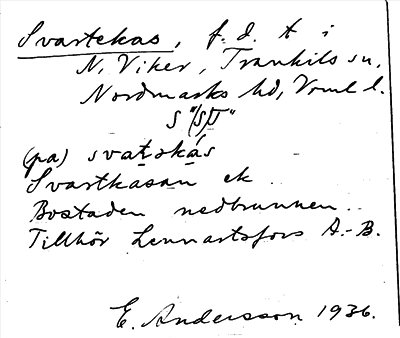 Svartekas, f. d. t i
N. Viker, Trankils sn,
Nordmarks hd, Vrml l.
(pa) svatskás
Svartkasan ek
Bostaden nedbrunnen.
Tillhör Lennartsfors A.-B.
E. Andersson 1936.